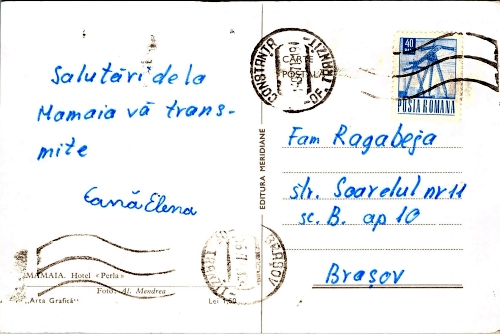 Salutări de la
Mamaia vă trans-
mite
Elena
MAMAIA. Hotel «Perla»
Foto: Al. Mendrea
„Arta Grafică"
Lei 1,50
EDITURA MERIDIANE
CARTE
POSTALA
CONSTANTA
40
POSTA ROMANA
Fam Ragabeja
str. Soarelui nr 11
sc. B. ap 10
Brașov